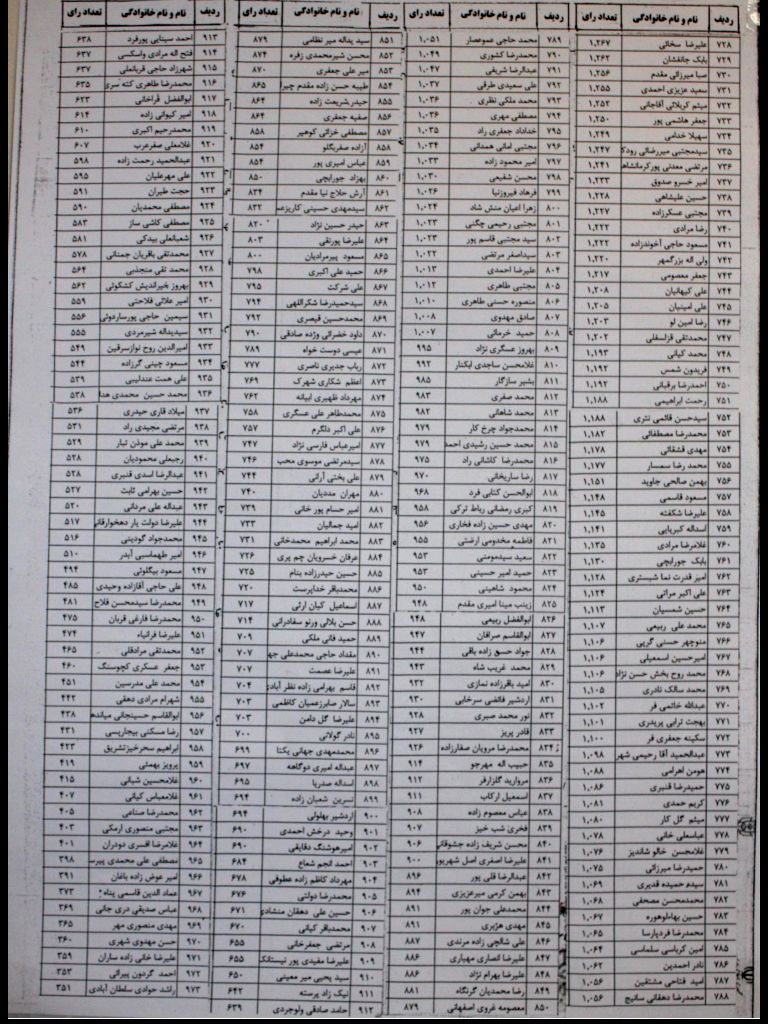 ردیف نام و نام خانوادگی تعداد رای
۷۲۸ علیرضا سخائی ۱,۲۶۷
۷۲۹ بابک جانفشان ۱,۲۶۲
۷۳۰ صبا میرزائی مقدم ۱,۲۵۶
۷۳۱ سعید عزیزی احمدی ۱,۲۵۵
۷۳۲ میثم کربلائی آقاجانی ۱,۲۵۲
۷۳۳ جعفر هاشمی پور ۱,۲۵۰
۷۳۴ سهیلا خدامی ۱,۲۴۹
۷۳۵ سیدمجتبی میررضائی رودک ۱,۲۴۷
۷۳۶ مرتضی معدنی پورکرمانشاه ۱,۲۴۱
۷۳۷ امیر خسرو صدوق ۱,۲۳۳
۷۳۸ حسین علیشاهی ۱,۲۲۸
۷۳۹ مجتبی عسکرزاده ۱,۲۲۷
۷۴۰ رضا مرادی ۱,۲۲۲
۷۴۱ مسعود حاجی آخوندزاده ۱,۲۲۲
۷۴۲ ولی اله بزرگمهر ۱,۲۲۰
۷۴۳ جعفر معصومی ۱,۲۱۷
۷۴۴ علی کیهانیان ۱,۲۰۸
۷۴۵ علی امینیان ۱,۲۰۵
۷۴۶ رضا امین لو ۱,۲۰۳
۷۴۷ محمدتقی قزلسفلی ۱,۲۰۲
۷۴۸ محمد کیانی ۱,۱۹۳
۷۴۹ فریدون شمس ۱,۱۹۲
۷۵۰ احمدرضا برقبانی ۱,۱۹۲
۷۵۱ رحمت ابراهیمی ۱,۱۸۸
۷۵۲ سیدحسن قائمی نثری ۱,۱۸۸
۷۵۳ محمدرضا مصطفائی ۱,۱۸۲
۷۵۴ مهدی قشقائی ۱,۱۷۸
۷۵۵ محمد رضا سمسار ۱,۱۷۷
۷۵۶ بهمن صالحی جاوید ۱,۱۵۱
۷۵۷ مسعود قاسمی ۱,۱۴۸
۷۵۸ علیرضا شکفته ۱,۱۴۵
۷۵۹ اسداله کبریایی ۱,۱۴۱
۷۶۰ غلامرضا مرادی ۱,۱۳۵
۷۶۱ بابک جورابچی ۱,۱۳۰
۷۶۲ امیر قدرت نما شبستری ۱,۱۲۸
۷۶۳ علی اکبر مرانی ۱,۱۲۴
۷۶۴ حسین شمسیان ۱,۱۱۳
۷۶۵ محمد علی ربیعی ۱,۱۰۷
۷۶۶ منوچهر حسنی گریی ۱,۱۰۶
۷۶۷ امیرحسین اسمعیلی ۱,۱۰۶
۷۶۸ محمد روح بخش حسن نژاد ۱,۱۰۶
۷۶۹ محمد سالک نادری ۱,۱۰۵
۷۷۰ عبدالله خاتمی فر ۱,۱۰۲
۷۷۱ بهجت ترابی پریدری ۱,۱۰۱
۷۷۲ سکینه جعفری فر ۱,۱۰۰
۷۷۳ عبدالحمید آقا رحیمی شهر ۱,۰۹۸
۷۷۴ هومن اهرامی ۱,۰۸۸
۷۷۵ حمیدرضا قنبری ۱,۰۸۶
۷۷۶ کریم حمدی ۱,۰۸۱
۷۷۷ میثم گل کار ۱,۰۸۰
۷۷۸ عباسعلی خانی ۱,۰۷۸
۷۷۹ غلامحسن خالو شاندیز ۱,۰۷۶
۷۸۰ حمیدرضا میرزائی ۱,۰۷۵
۷۸۱ سیدم حمیده قدیری ۱,۰۶۹
۷۸۲ محمدمحسن مصحفی ۱,۰۶۸
۷۸۳ حسین بهاءلوهوره ۱,۰۶۷
۷۸۴ محمدرضا فردپارسا ۱,۰۶۵
۷۸۵ امین کرباسی سلماسی ۱,۰۶۴
۷۸۶ نادر احمدین ۱,۰۶۲
۷۸۷ امید فتاحی مشتقین ۱,۰۵۶
۷۸۸ محمدرضا دهقانی سانیج ۱,۰۵۶
ردیف نام و نام خانوادگی تعداد رای
۷۸۹ محمد حاجی عموعصار ۱,۰۵۱
۷۹۰ محمدرضا کشوری ۱,۰۴۹
۷۹۱ عبدالرضا شریفی ۱,۰۴۷
۷۹۲ علی سعیدی طرقی ۱,۰۳۷
۷۹۳ محمد ملکی نظری ۱,۰۳۶
۷۹۴ مصطفی مهری ۱,۰۳۶
۷۹۵ خداداد جعفری راد ۱,۰۳۵
۷۹۶ مجتبی امانی همدانی ۱,۰۳۴
۷۹۷ امیر محمود زاده ۱,۰۳۳
۷۹۸ محسن شفیعی ۱,۰۳۰
۷۹۹ فرهاد فیروزنیا ۱,۰۲۶
۸۰۰ زهرا اعیان منش شاد ۱,۰۲۴
۸۰۱ مجتبی رحیمی چگنی ۱,۰۲۳
۸۰۲ سید مجتبی قاسم پور ۱,۰۲۳
۸۰۳ سیداصغر مرتضی ۱,۰۲۲
۸۰۴ علیرضا احمدی ۱,۰۱۳
۸۰۵ مجتبی طاهری ۱,۰۱۲
۸۰۶ منصوره حسنی طاهری ۱,۰۱۰
۸۰۷ صادق مهدوی ۱,۰۰۸
۸۰۸ حمید خرمائی ۱,۰۰۷
۸۰۹ بهروز عسگری نژاد ۹۹۵
۸۱۰ غلامحسن ساجدی ابکنار ۹۹۲
۸۱۱ بشیر سازگار ۹۸۵
۸۱۲ محمد صفری ۹۸۳
۸۱۳ محمد شاهانی ۹۸۲
۸۱۴ محمدجواد چرخ کار ۹۷۹
۸۱۵ محمد حسین رشیدی احمد ۹۷۹
۸۱۶ محمدرضا کاشانی راد ۹۷۵
۸۱۷ رضا ساریخانی ۹۷۰
۸۱۸ ابوالحسن کتابی فرد ۹۶۸
۸۱۹ کبری رمضانی رباط ترکی ۹۵۸
۸۲۰ مهدی حسین زاده فخاری ۹۵۶
۸۲۱ فاطمه مخدومی ارضتی ۹۵۵
۸۲۲ سعید سیدمومنی ۹۵۳
۸۲۳ حمید امیر حسینی ۹۵۳
۸۲۴ محمود شاهینی ۹۵۰
۸۲۵ زینب مینا امیری مقدم ۹۴۸
۸۲۶ ابوالفضل ربیعی ۹۴۸
۸۲۷ ابوالقاسم صرافان ۹۴۷
۸۲۸ جواد حسن زاده باقی ۹۴۴
۸۲۹ محمد غریب شاه ۹۴۳
۸۳۰ امید باقرزاده نمازی ۹۳۲
۸۳۱ اردشیر فائضی سرخابی ۹۳۰
۸۳۲ نور محمد صبری ۹۲۸
۸۳۳ قادر پریز ۹۲۷
۸۳۴ محمدرضا مرویان صفارزاده ۹۲۶
۸۳۵ حبیب اله مهرجو ۹۱۴
۸۳۶ مروارید گلزارفر ۹۱۲
۸۳۷ اسمعیل ارکاب ۹۱۱
۸۳۸ عباس معصوم زاده ۹۰۸
۸۳۹ فخری شب خیز ۹۰۷
۸۴۰ محسن شریف زاده جشوقانی ۹۰۶
۸۴۱ علیرضا اصغری اصل شهرپور ۹۰۰
۸۴۲ عبدالرضا قلی پور ۸۹۶
۸۴۳ بهمن کرمی میرعزیزی ۸۹۴
۸۴۴ محمدعلی جوان پور ۸۹۱
۸۴۵ مهدی هژبری ۸۹۱
۸۴۶ علی شالچی زاده مرندی ۸۸۷
۸۴۷ علیرضا انصاری مهیاری ۸۸۶
۸۴۸ علیرضا بهرام نژاد ۸۸۶
۸۴۹ رضا محمدیان گرنگاه ۸۸۱
۸۵۰ معصومه غروی اصفهانی ۸۷۹
ردیف نام و نام خانوادگی تعداد رای
۸۵۱ سید یداله میر نظامی ۸۷۹
۸۵۲ محسن شیرمحمدی زفره ۸۷۴
۸۵۳ میر علی جعفری ۸۷۰
۸۵۴ طیبه حسن زاده مقدم چیر ۸۶۵
۸۵۵ حیدر شریعت زاده ۸۶۴
۸۵۶ صفیه جعفری ۸۶۴
۸۵۷ مصطفی خزائی کوهپر ۸۵۸
۸۵۸ آزاده صفربگلو ۸۵۴
۸۵۹ عباس امیری پور ۸۵۴
۸۶۰ بهزاد جورابچی ۸۵۰
۸۶۱ آرش حلاج نیا مقدم ۸۳۴
۸۶۲ سیدمهدی حسینی کاریزعم ۸۳۲
۸۶۳ حیدر حسین نژاد ۸۲۰
۸۶۴ علیرضا پورنقی ۸۰۳
۸۶۵ مسعود پیرمرادیان ۸۰۰
۸۶۶ حمید علی اکبری ۷۹۸
۸۶۷ علی شرکت ۷۹۵
۸۶۸ سیدحمیدرضا شکراللهی ۷۹۴
۸۶۹ محمدحسین قیصری ۷۹۲
۸۷۰ داود خضرائی وژده صادقی ۷۹۰
۸۷۱ عیسی دوست خواه ۷۸۹
۸۷۲ رباب جدیری ناصری ۷۷۷
۸۷۳ اعظم شکاری شهرک ۷۶۹
۸۷۴ مهرداد ظهیری ابیانه ۷۶۲
۸۷۵ محمدطاهر علی عسگری ۷۵۸
۸۷۶ علی اکبر دلگرم ۷۵۷
۸۷۷ امیرعباس فارسی نژاد ۷۴۷
۸۷۸ سیدمرتضی موسوی محب ۷۴۶
۸۷۹ علی بختی آرانی ۷۴۴
۸۸۰ مهران مددیان ۷۴۰
۸۸۱ امیر حسام پور خانی ۷۳۹
۸۸۲ امید جمالیان ۷۳۳
۸۸۳ محمد ابراهیم محمدخانی ۷۳۱
۸۸۴ عرفان خسرویان چم پری ۷۲۶
۸۸۵ حسین حیدرزاده بنام ۷۲۵
۸۸۶ محمدباقر خداپرست ۷۲۰
۸۸۷ اسماعیل کیان ارثی ۷۱۷
۸۸۸ حسن بلالی ورنو سفادرانی ۷۱۴
۸۸۹ حمید فانی ملکی ۷۰۹
۸۹۰ مقداد حاجی محمدعلی جه ۷۰۷
۸۹۱ علیرضا عصمت ۷۰۷
۸۹۲ قاسم بهرامی زاده نظر آباد ۷۰۴
۸۹۳ سالار صابرعزمیان کاظمی ۷۰۳
۸۹۴ علیرضا گل دامن ۷۰۳
۸۹۵ نادر گولانی ۷۰۰
۸۹۶ محمدمهدی جهانی یکتا ۶۹۹
۸۹۷ عبداله امیری دوگاهه ۶۹۷
۸۹۸ اسداله صدریا ۶۹۵
۸۹۹ نسرین شعبان زاده ۶۹۴
۹۰۰ اردشیر بهلولی ۶۹۴
۹۰۱ وحید درخش احمدی ۶۹۰
۹۰۲ امیرهوشنگ دقایقی ۶۹۰
۹۰۳ احمد انجم شعاع ۶۸۴
۹۰۴ مهرداد کاظم زاده عطوفی ۶۷۸
۹۰۵ محمدرضا دولتی ۶۷۶
۹۰۶ حسین علی دهقان منشادی ۶۷۱
۹۰۷ محمدباقر کیانی ۶۷۰
۹۰۸ مرتضی جعفرخانی ۶۵۵
۹۰۹ علیرضا مفیدی پور نیستانک ۶۵۵
۹۱۰ سید یحیی میر معینی ۶۵۰
۹۱۱ نیک زاد پرسته ۶۴۲
۹۱۲ حامد صادقی ولوجردی ۶۳۹
ردیف نام و نام خانوادگی تعداد رای
۹۱۳ احمد سینایی پورفرد ۶۳۸
۹۱۴ فتح اله مرادی واسکسی ۶۳۷
۹۱۵ شهرزاد حاجی قربانعلی ۶۳۷
۹۱۶ محمدرضا طاهری کته سری ۶۳۵
۹۱۷ ابوالفضل قراخانی ۶۲۳
۹۱۸ امیر کیوانی زاده ۶۱۴
۹۱۹ محمدرحیم اکبری ۶۱۰
۹۲۰ غلامعلی صفرعرب ۶۰۷
۹۲۱ عبدالحمید رحمت زاده ۵۹۸
۹۲۲ علی مهرعلیان ۵۹۵
۹۲۳ حجت طیران ۵۹۱
۹۲۴ مصطفی محمدیان ۵۹۰
۹۲۵ مصطفی کاشی ساز ۵۸۳
۹۲۶ شعبانعلی بیدکی ۵۸۱
۹۲۷ محمدتقی باقریان جمنانی ۵۷۸
۹۲۸ محمد تقی منجذبی ۵۶۴
۹۲۹ بهروز خیراندیش کشکوئی ۵۶۲
۹۳۰ امیر علائی فلاحتی ۵۵۹
۹۳۱ سیمین حاجی پورساردوئی ۵۵۶
۹۳۲ سیدیداله شیرمردی ۵۵۵
۹۳۳ امیرالدین روح نوازسرقین ۵۴۹
۹۳۴ مسعود چینی گرزاده ۵۴۴
۹۳۵ علی همت عندلیبی ۵۳۹
۹۳۶ محمد حسین محمدی هدا ۵۳۸
۹۳۷ میلاد قاری حیدری ۵۳۶
۹۳۸ مرتضی مجیدی راد ۵۳۱
۹۳۹ محمد علی موذن تبار ۵۲۹
۹۴۰ رجبعلی محمودیان ۵۲۸
۹۴۱ عبدالرضا اسدی قنبری ۵۲۸
۹۴۲ حسین بهرامی ثابت ۵۲۷
۹۴۳ عبداله علی مردانی ۵۲۰
۹۴۴ علیرضا دولت یار دهخوارقانی ۵۱۷
۹۴۵ محمدجواد گودینی ۵۱۶
۹۴۶ امیر طهماسبی آبدر ۵۱۰
۹۴۷ مسعود بیگلوئی ۴۹۴
۹۴۸ علی حاجی آقازاده وحیدی ۴۸۵
۹۴۹ محمدرضا سیدمحسن فلاح ۴۸۱
۹۵۰ محمدرضا فارغی قربان ۴۷۵
۹۵۱ علیرضا قرائیاه ۴۷۴
۹۵۲ محمدتقی مرادقلی ۴۶۵
۹۵۳ جعفر عسکری کچوسنگ ۴۶۰
۹۵۴ محمد علی مدرسین ۴۵۱
۹۵۵ شهرام مرادی دهقی ۴۴۲
۹۵۶ ابوالقاسم حسینجانی میانده ۴۳۸
۹۵۷ رضا مسکنی بیجارپسی ۴۳۱
۹۵۸ ابراهیم سحرخیزتشریق ۴۲۳
۹۵۹ پرویز بهمنی ۴۱۹
۹۶۰ غلامحسین شبانی ۴۱۵
۹۶۱ غلامعباس کیانی ۴۰۷
۹۶۲ محمدرضا صناعی ۴۰۵
۹۶۳ مجتبی منصوری ارمکی ۴۰۳
۹۶۴ غلامرضا افسری دودران ۴۰۱
۹۶۵ مصطفی علی محمدی پیرس ۳۹۸
۹۶۶ امیر عوض زاده باغان ۳۹۱
۹۶۷ عماد الدین قاسمی پناه ۳۷۳
۹۶۸ عباس صدیقی دری جانی ۳۶۹
۹۶۹ مهدی منصوری مهر ۳۶۵
۹۷۰ حسن مهدوی شهری ۳۶۰
۹۷۱ علیرضا خانی زاده ساران ۳۵۹
۹۷۲ احمد گردون پیرائی ۳۵۳
۹۷۳ راشد حوادی سلطان آبادی ۳۵۱